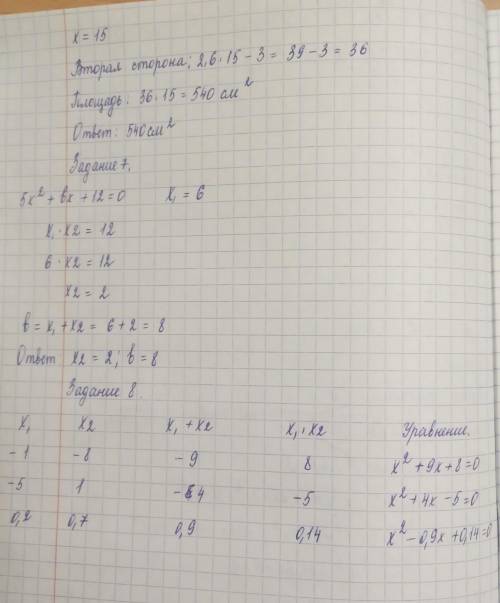 x = 15
Вторая сторона; 2,6 · 15 − 3 = 39 − 3 = 36
Площадь: 36 · 15 = 540 см²
Ответ: 540 см²
Задание 7.
5x² + bx + 12 = 0 x₁ = 6
x₁ · x2 = 12
6 · x2 = 12
x2 = 2
b = x₁ + x2 = 6 + 2 = 8
Ответ x2 = 2; b = 8
Задание 8.
x₁ x2 x₁ + x2 x₁ · x2 Уравнение.
−1 −8 −9 8 x² + 9x + 8 = 0
−5 1 −4 −5 x² + 4x − 5 = 0
0,2 0,7 0,9 0,14 x² − 0,9x + 0,14 = 0